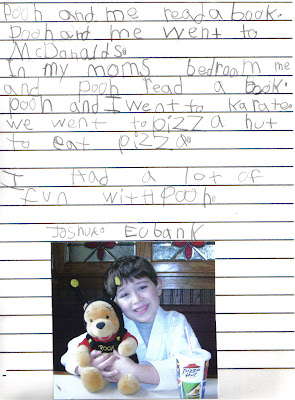 Pooh and me read a book.
Pooh and me went to
McDonalds.
In my moms bedroom me
and pooh read a book.
pooh and I went to karate.
we went to pizza hut
to eat pizza.
I Had a lot of
fun with Pooh.
Joshua Eubank
POOH
Pizza
Hut